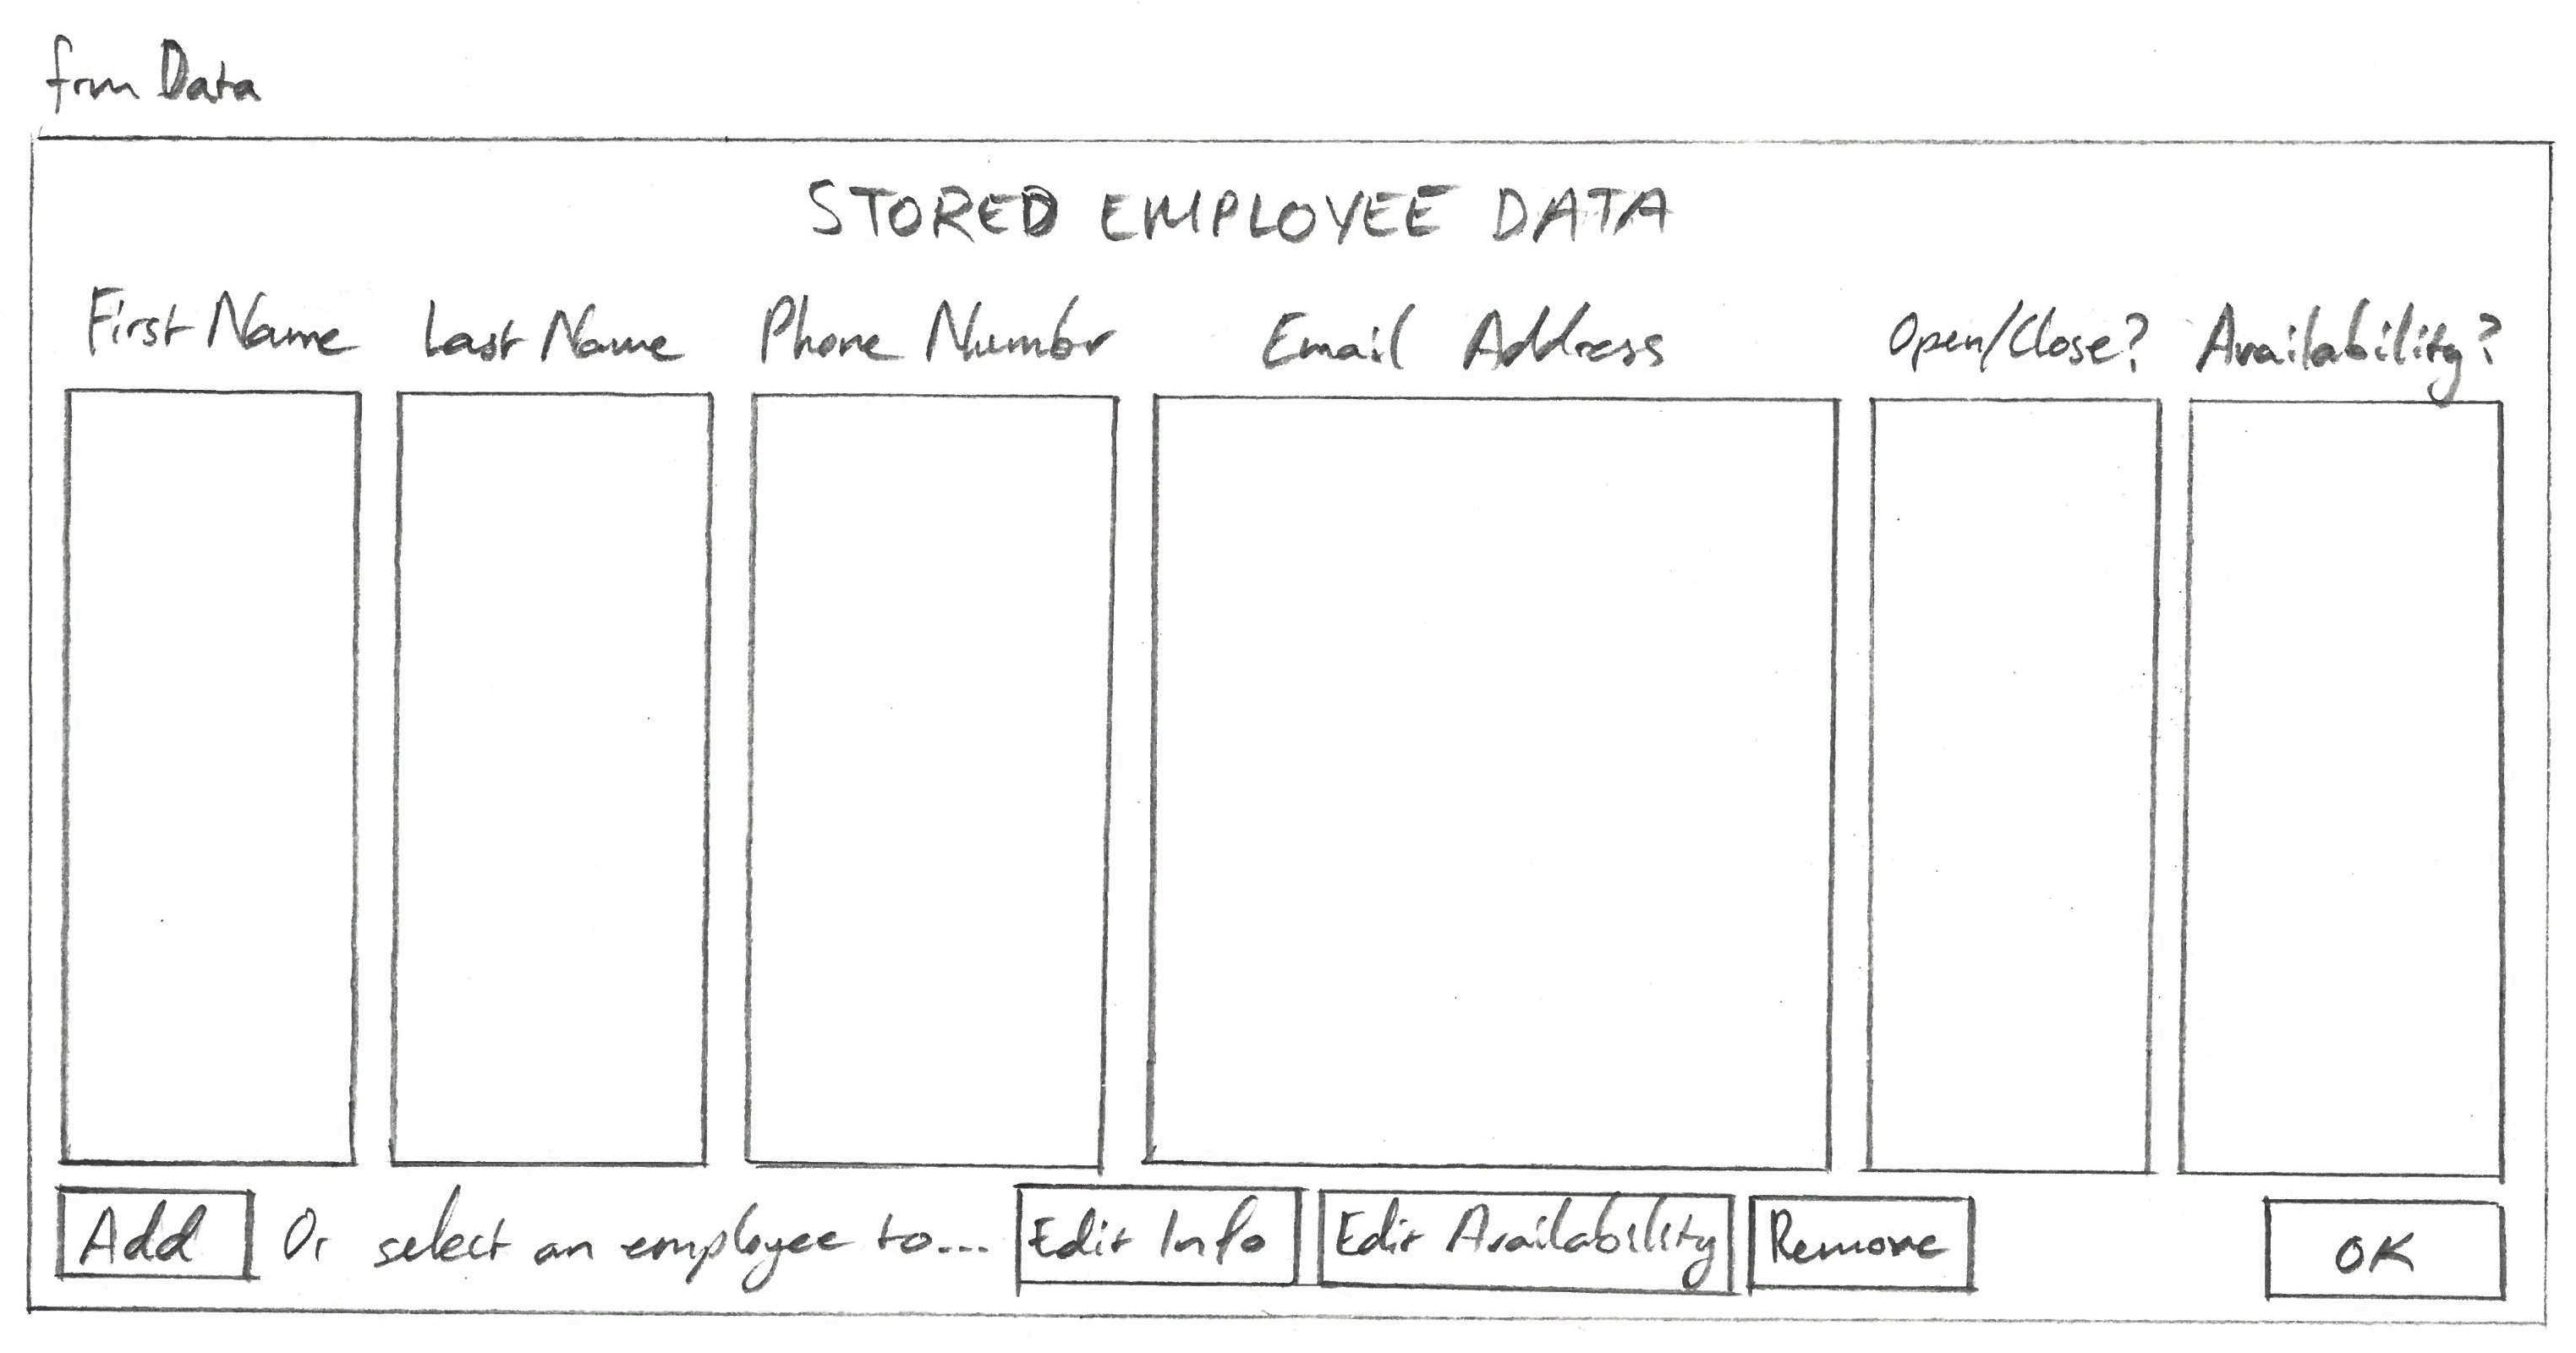 frmData
STORED EMPLOYEE DATA
First Name Last Name Phone Numbr Email Address Open/Close? Availability?
Add Or select an employee to... Edit Info Edit Availability Remove OK